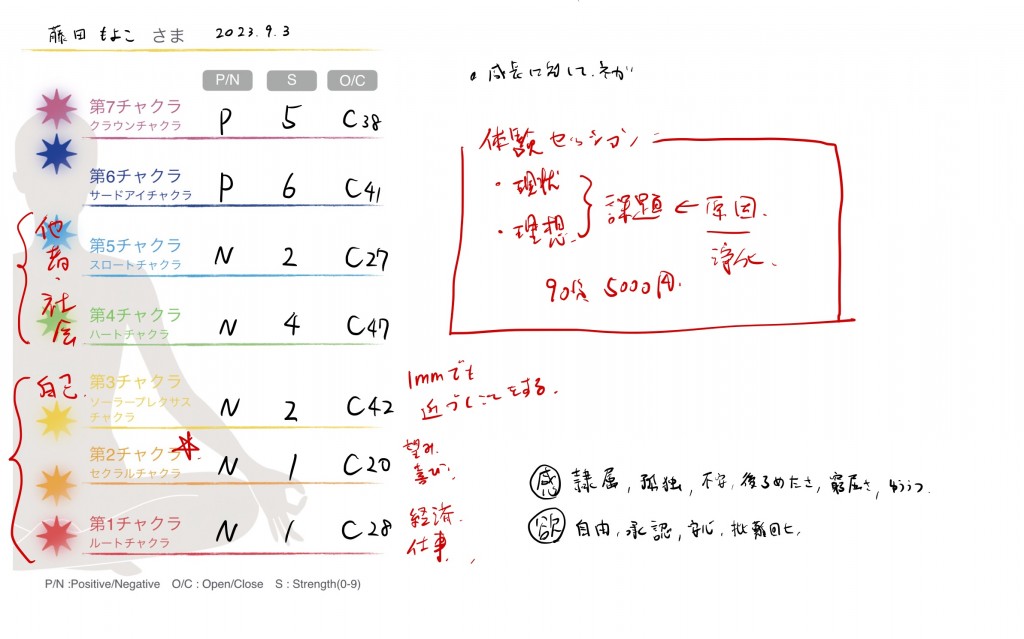 藤田 もよこ さま 2023.9.3
P/N S O/C
第7チャクラ
クラウンチャクラ
P 5 C38
第6チャクラ
サードアイチャクラ
P 6 C41
他者・社会
第5チャクラ
スロートチャクラ
N 2 C27
第4チャクラ
ハートチャクラ
N 4 C47
自己
第3チャクラ
ソーラープレクサス
チャクラ
N 2 C42
1mmでも
近づくことをする。
第2チャクラ
セクラルチャクラ
N 1 C20
望み.
喜び.
第1チャクラ
ルートチャクラ
N 1 C28
経済.
仕事.
P/N :Positive/Negative O/C : Open/Close S : Strength(0-9)
・成長に対して、ネガ
体験セッション
・現状
・理想.
課題 ← 原因.
浄化.
90分 5000円.
感 隷属, 孤独, 不安, 後ろめたさ, 窮屈さ, ゆううつ.
欲 自由, 承認, 安心, 批難回ヒ.